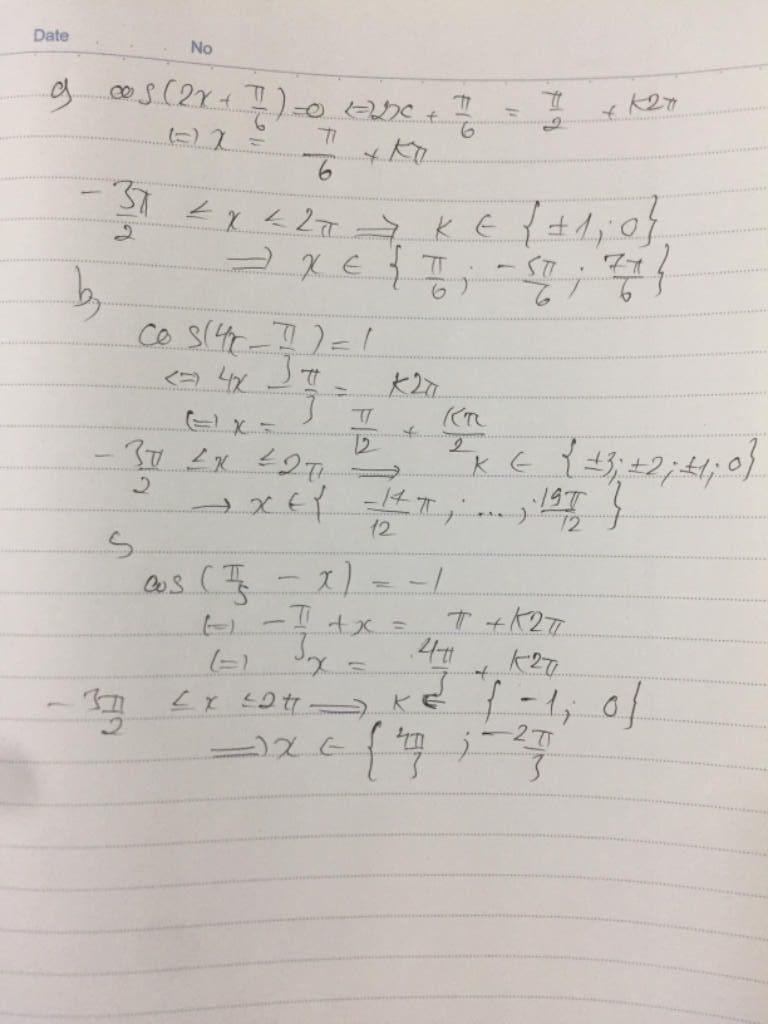 Date
No
a, cos(2x + π/6) = 0 <=> 2x + π/6 = π/2 + k2π
(=) x = π/6 + kπ
-3π/2 ≤ x ≤ 2π => k ∈ {±1; 0}
=> x ∈ {π/6; -5π/6; 7π/6}
b,
cos(4x - π/3) = 1
<=> 4x - π/3 = k2π
(=) x = π/12 + kπ/2
-3π/2 ≤ x ≤ 2π => k ∈ {±3; ±2; ±1; 0}
→ x ∈ { -17/12 π; ...; 19π/12 }
c
cos(π/5 - x) = -1
(=) -π/3 + x = π + k2π
(=) x = 4π/3 + k2π
-3π/2 ≤ x ≤ 2π => k ∈ {-1; 0}
=> x ∈ {4π/3; -2π/3